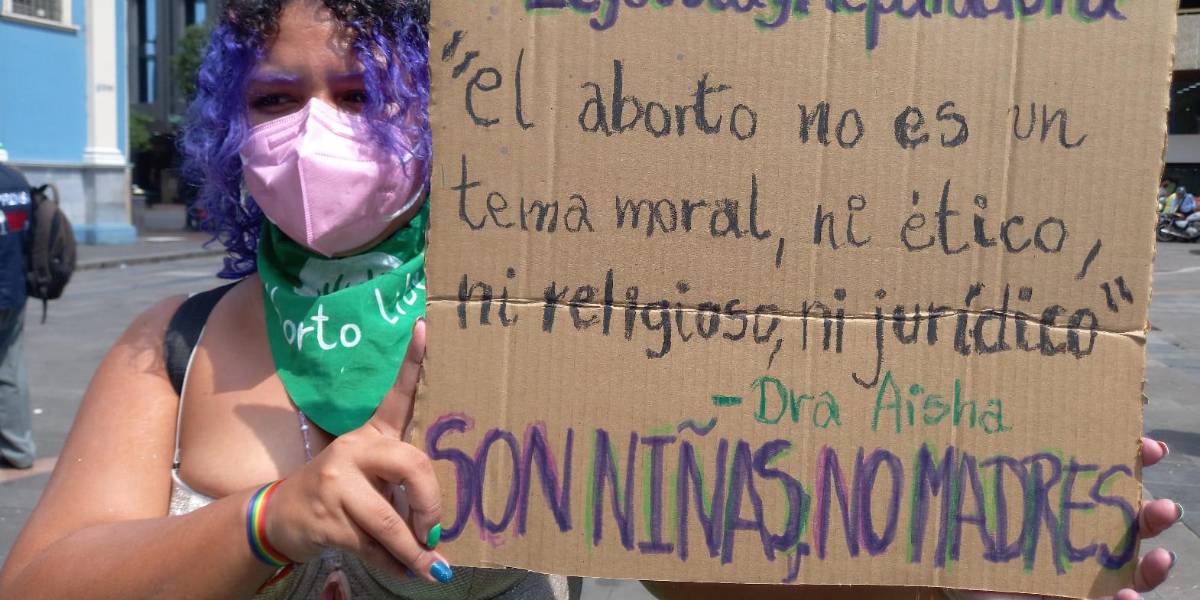 "El aborto no es un
tema moral, ni ético,
ni religioso, ni jurídico"
-Dra Aisha
SON NIÑAS, NO MADRES